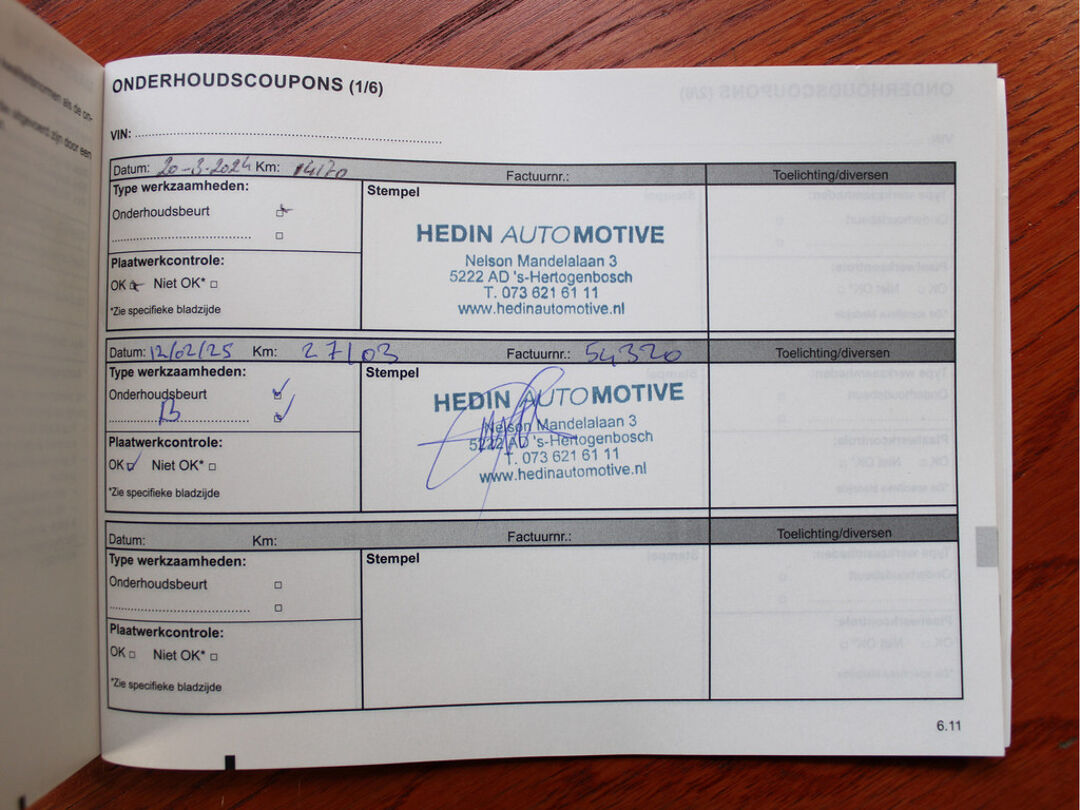 ONDERHOUDSCOUPONS (1/6)
VIN:
Datum: 20-3-2024 Km: 14170 Factuurnr.: Toelichting/diversen
Type werkzaamheden: Stempel
Onderhoudsbeurt
HEDIN AUTOMOTIVE
Nelson Mandelalaan 3
5222 AD 's-Hertogenbosch
T. 073 621 61 11
www.hedinautomotive.nl
Plaatwerkcontrole:
OK Niet OK*
*Zie specifieke bladzijde
Datum: 12/02/25 Km: 27103 Factuurnr.: 54320 Toelichting/diversen
Type werkzaamheden: Stempel
Onderhoudsbeurt
B
HEDIN AUTOMOTIVE
Nelson Mandelalaan 3
5222 AD 's-Hertogenbosch
T. 073 621 61 11
www.hedinautomotive.nl
Plaatwerkcontrole:
OK Niet OK*
*Zie specifieke bladzijde
Datum: Km: Factuurnr.: Toelichting/diversen
Type werkzaamheden: Stempel
Onderhoudsbeurt
Plaatwerkcontrole:
OK Niet OK*
*Zie specifieke bladzijde
6.11